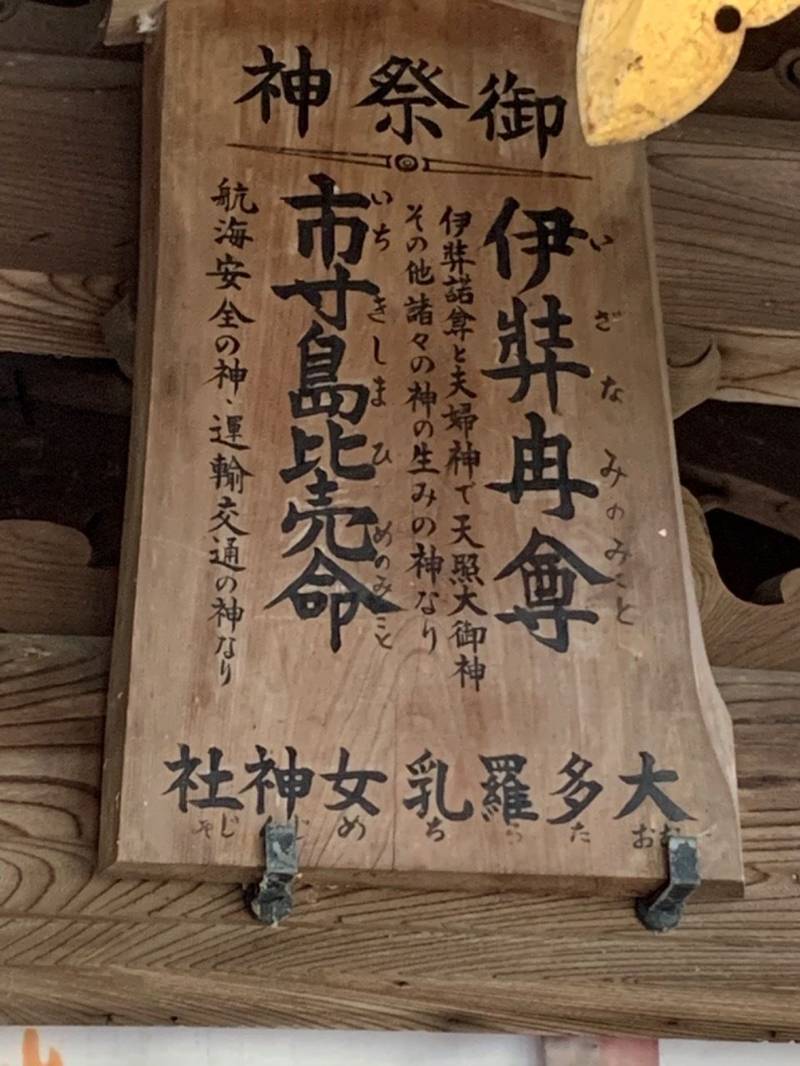 御祭神
伊弉冉尊
いざなみのみこと
伊弉諾尊と夫婦神で天照大御神
その他諸々の神の生みの神なり
市寸島比売命
いちきしまひめのみこと
航海安全の神・運輸交通の神なり
大多羅乳女神社
おおたらちめじんじゃ